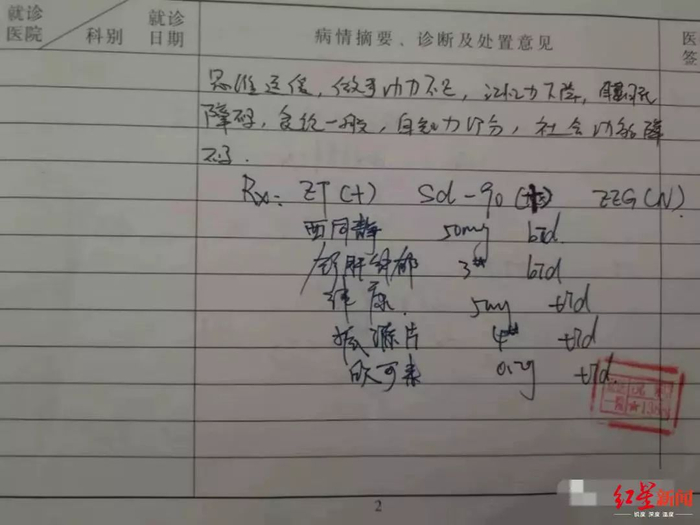 就诊医院 科别 就诊日期 病情摘要、诊断及处置意见 医 签
思维迟缓，做事动力不足，记忆力下降，睡眠
障碍，食欲一般，自知力部分，社会功能障
Rx: ZT(+) Scl-90 (+) ZZG(N)
西同静 50mg bid
舒肝解郁 3# bid
5mg tid
片 4# tid
欧可来 0.2g tid
2
红星新闻
锐度 深度 温度